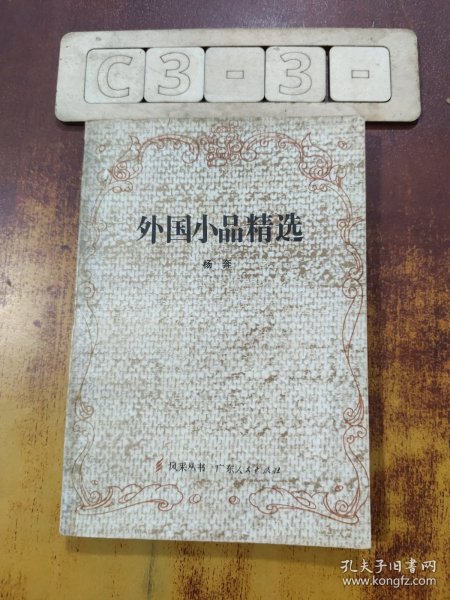 C3-3-
外国小品精选
杨奔
风采丛书 广东人民出版社
孔夫子旧书网
www.kongfz.com